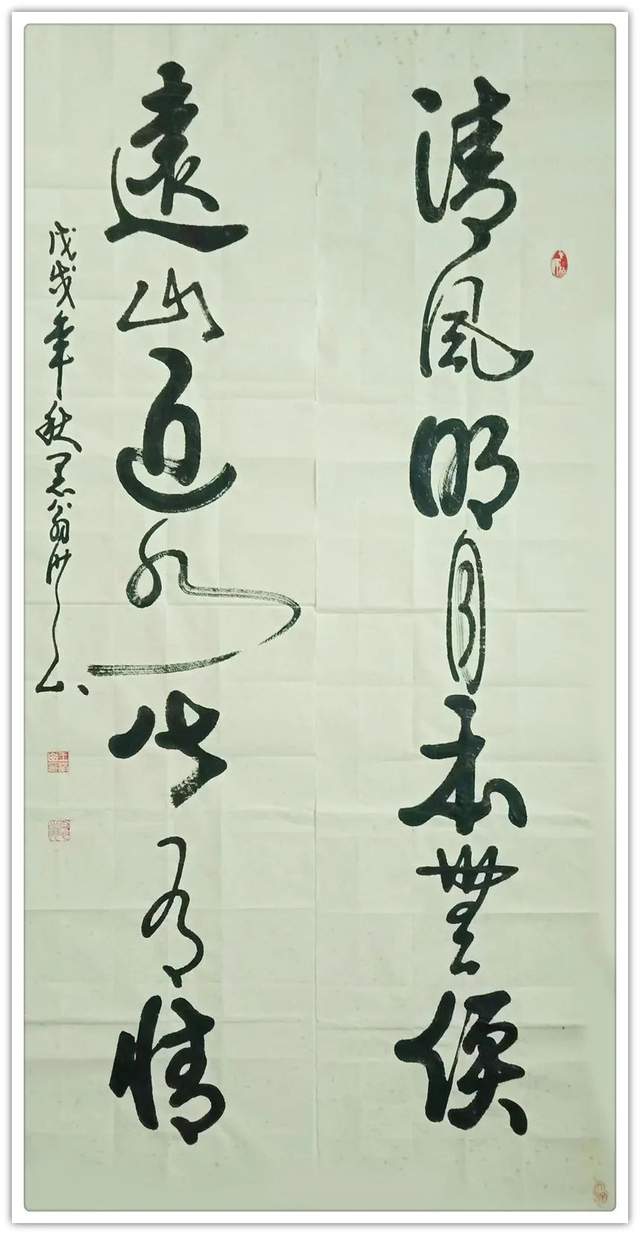 清風明月本無價
遠山近水皆有情
戊戌年秋